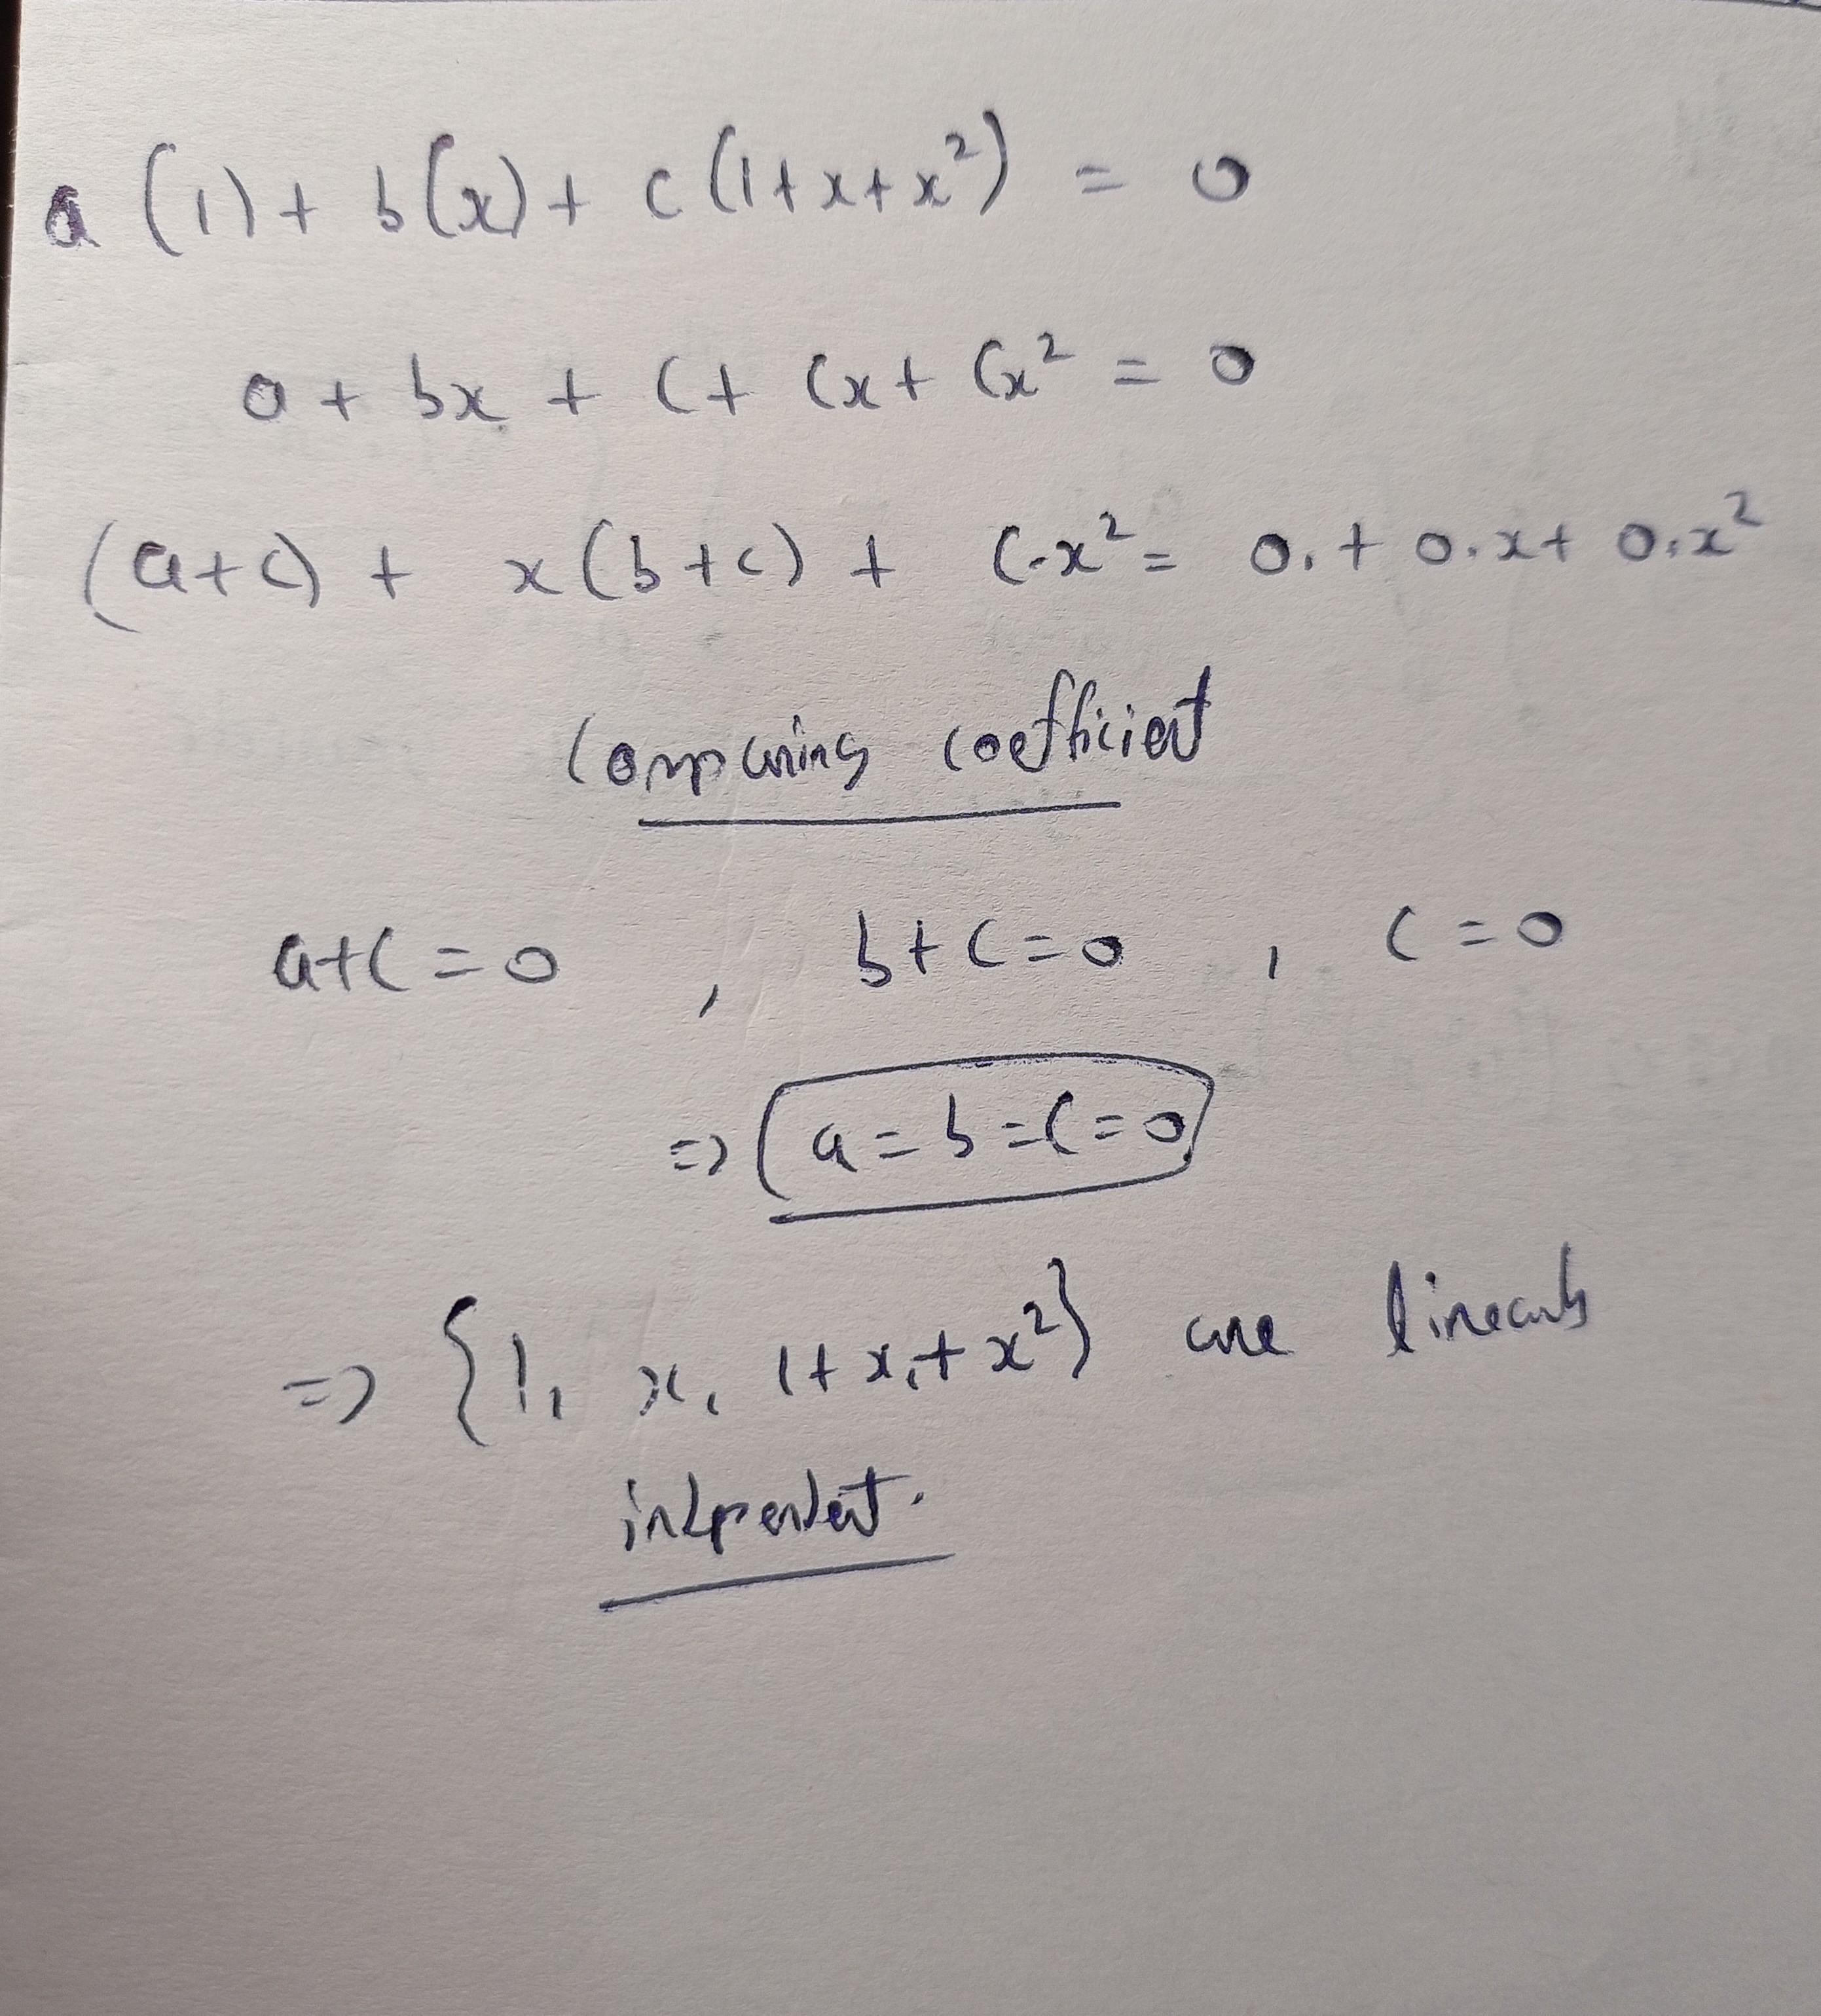 a (1) + b(x) + c (1+x+x²) = 0
a + bx + c + cx + cx² = 0
(a+c) + x(b+c) + c.x² = 0. + 0.x + 0.x²
Comparing coefficient
a+c=0 , b+c=0 , c=0
=> a=b=c=0
=> {1, x, 1+x+x²} are linearly
independent.